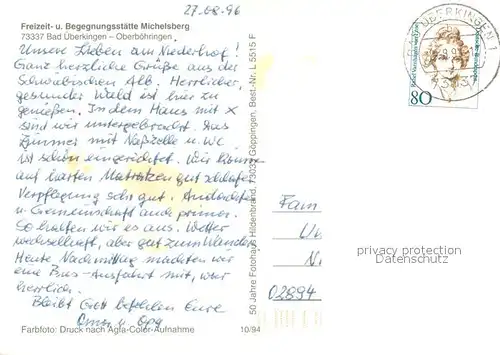 27.08.96
Freizeit- u. Begegnungsstätte Michelsberg
73337 Bad Überkingen – Oberböhringen
Unsere Lieben am Niederhof!
Ganz herzliche Grüße aus der
Schwäbischen Alb. Herrlicher,
gesunder Wald ist hier zu
genießen. In dem Haus mit X
sind wir untergebracht. Das
Zimmer mit Naßzelle u. WC
ist schön eingerichtet. Wir können
auf harten Matratzen gut schlafen
Verpflegung sehr gut. Andachten
u. Gemeinschaft auch prima.
So halten wir es aus. Wetter
wechselhaft, aber gut zum Wandern
Heute Nachmittag machten wir
eine Bus-Ausfahrt mit, war
herrlich.
Bleibt Gott befohlen Eure
Oma u. Opa
Farbfoto: Druck nach Agfa-Color-Aufnahme
10/94
50 Jahre Fotohaus Hildenbrand, 73033 Göppingen, Best.-Nr. L 5515 F
ÜBERKINGEN
80
73337
Fam
02894
privacy protection
Datenschutz